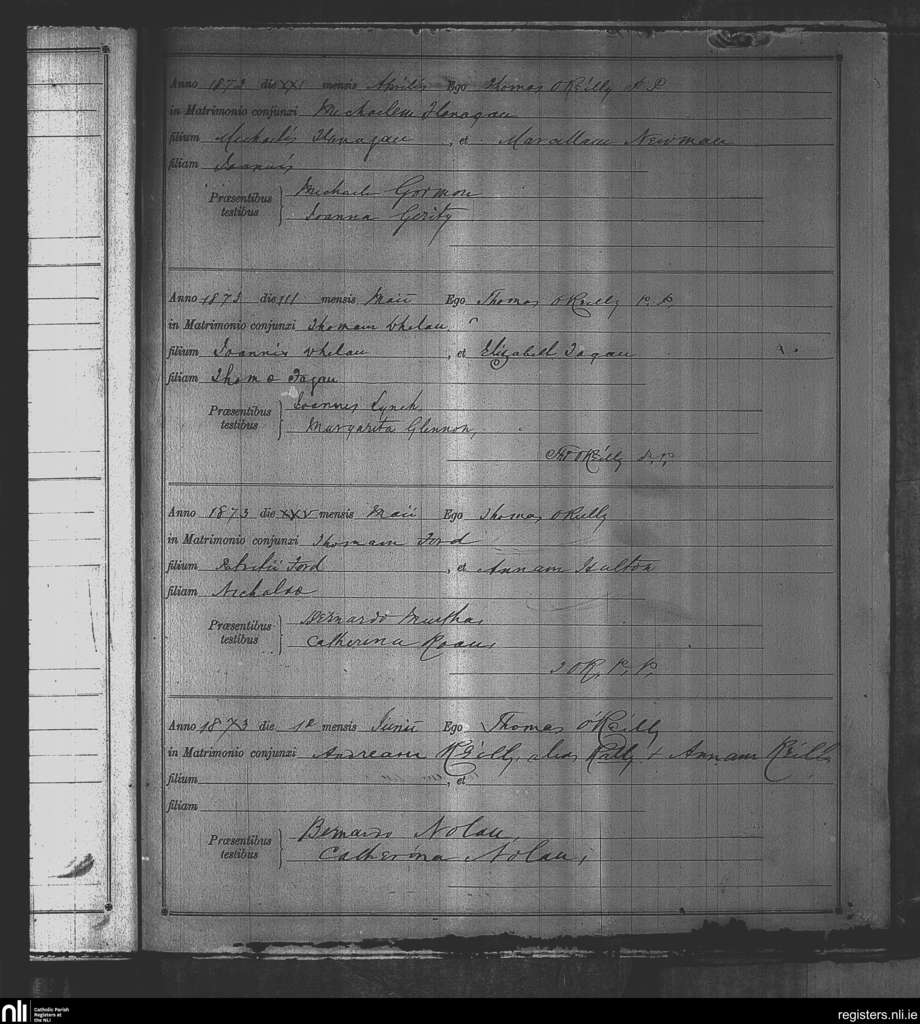 Anno 1873 die XXI mensis Aprilis Ego Thomas O'Reilly P. P.
in Matrimonio conjunxi Michaelem Flanagan
filium Michaelis Flanagan , et Marcellam Newman
filiam Joannis
Præsentibus testibus } Michaele Gormon
Joanna Gerity
Anno 1873 die III mensis Maii Ego Thomas O'Reilly P. P.
in Matrimonio conjunxi Thomam Whelan,
filium Joannis Whelan , et Elizabeth Fagan
filiam Thom Fagan
Præsentibus testibus } Joannes Lynch
Margarita Glennon,
O'Reilly P. P.
Anno 1873 die XXV mensis Maii Ego Thomas O'Reilly
in Matrimonio conjunxi Thomam Ford
filium Patritii Ford , et Annam
filiam
Præsentibus testibus } Bernardo Murtha,
Catherina
T O'R, P. P.
Anno 1873 die 1e mensis Junii Ego Thomas O'Reilly
in Matrimonio conjunxi Andream Reilly, alias + Annam Reilly
filium , et
filiam
Præsentibus testibus } Bernardo Nolan,
Catherina Nolan,
nli
Catholic Parish
Registers at
the NLI
registers.nli.ie